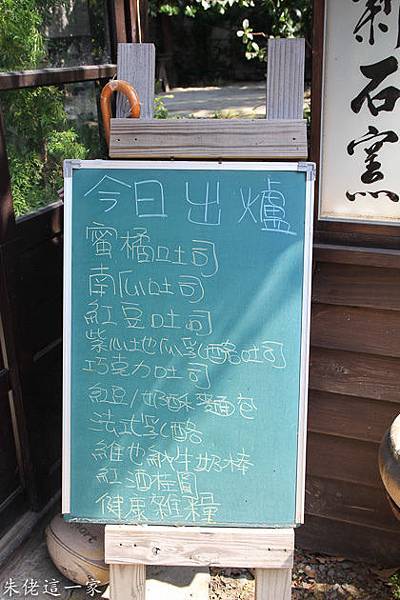 今日出爐
蜜橘吐司
南瓜吐司
紅豆吐司
紫心地瓜乳酪吐司
巧克力吐司
紅豆/奶酥麵包
法式乳酪
維也納牛奶棒
紅酒桂圓
健康雜糧
新石窯
朱佬這一家